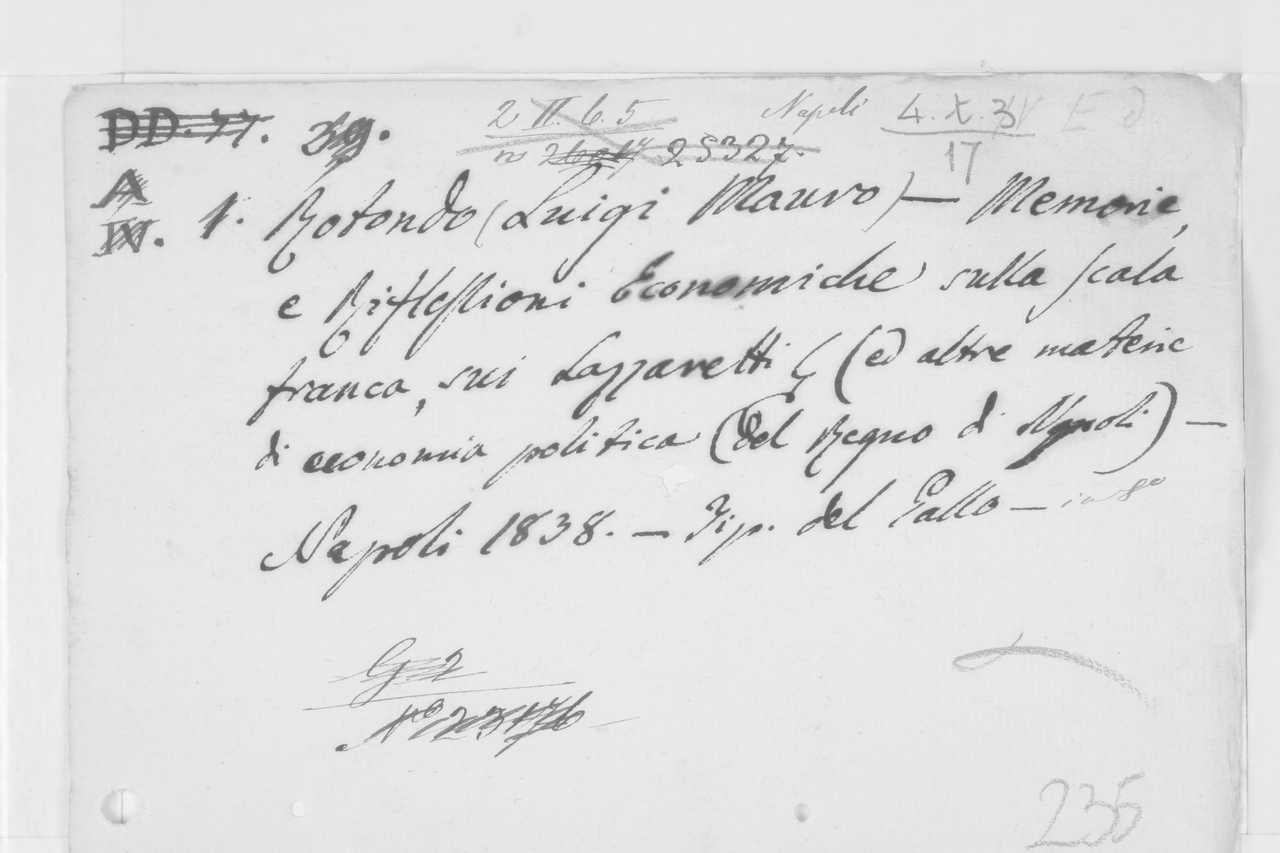 DD. 77. 39. 2 II. 6. 5 Napoli 4. X. 3
25327. 17
A
IV. 1. Rotondo (Luigi Mauro) — Memorie,
e Riflessioni Economiche sulla scala
franca, sui Lazzaretti (ed altre materie
di economia politica (del Regno di Napoli) —
Napoli 1838. — Tip. del Gallo — in 8º
G. 2
Nº 23176
235